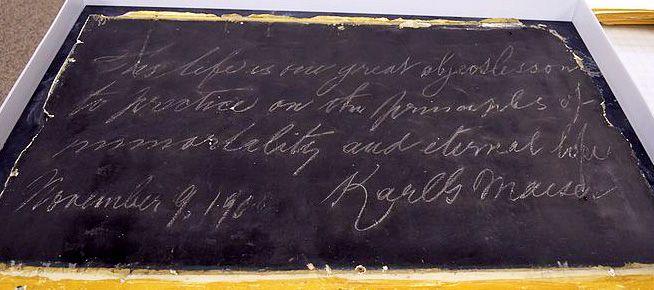 This life is one great objectlesson
to practice on the principles of
immortality and eternal life
November 9, 1900 Karl G Maeser